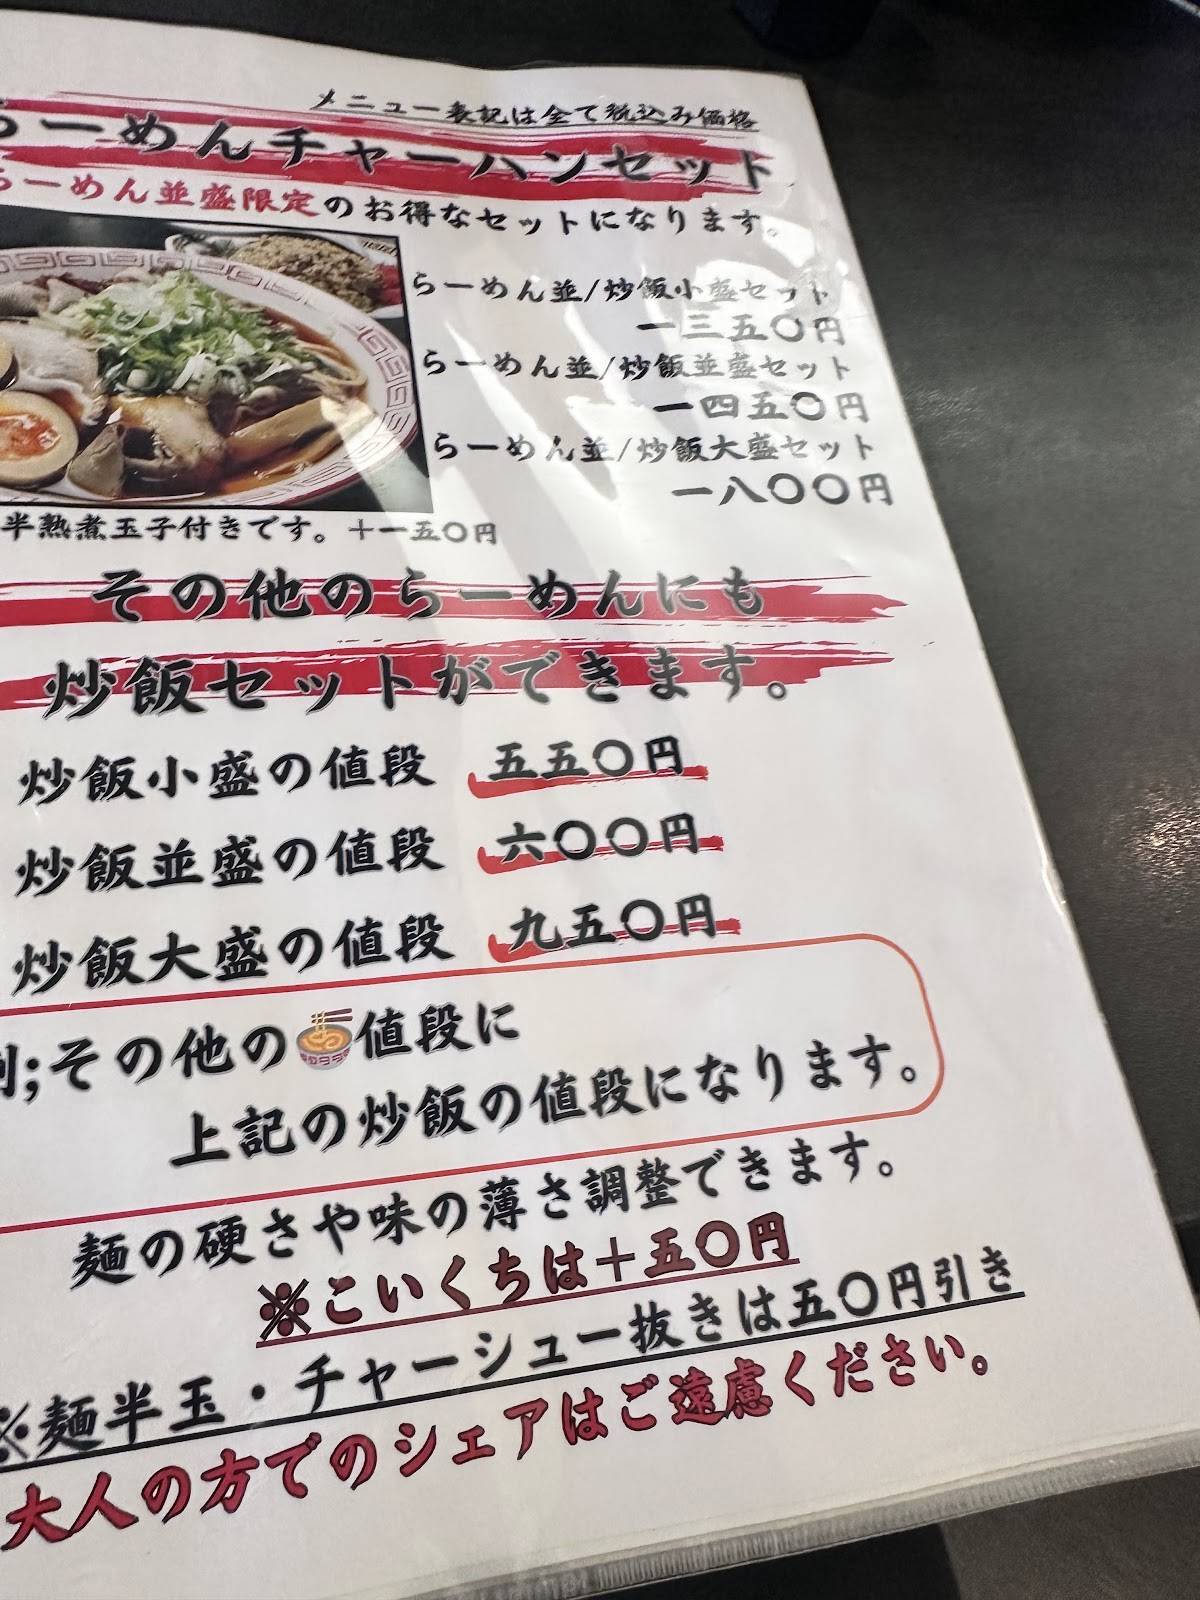 メニュー表記は全て税込み価格
らーめんチャーハンセット
らーめん並盛限定のお得なセットになります。
らーめん並/炒飯小盛セット
一三五〇円
らーめん並/炒飯並盛セット
一四五〇円
らーめん並/炒飯大盛セット
一八〇〇円
半熟煮玉子付きです。+一五〇円
その他のらーめんにも
炒飯セットができます。
炒飯小盛の値段 五五〇円
炒飯並盛の値段 六〇〇円
炒飯大盛の値段 九五〇円
例;その他の🍜値段に
上記の炒飯の値段になります。
麺の硬さや味の薄さ調整できます。
※こいくちは+五〇円
※麺半玉・チャーシュー抜きは五〇円引き
大人の方でのシェアはご遠慮ください。